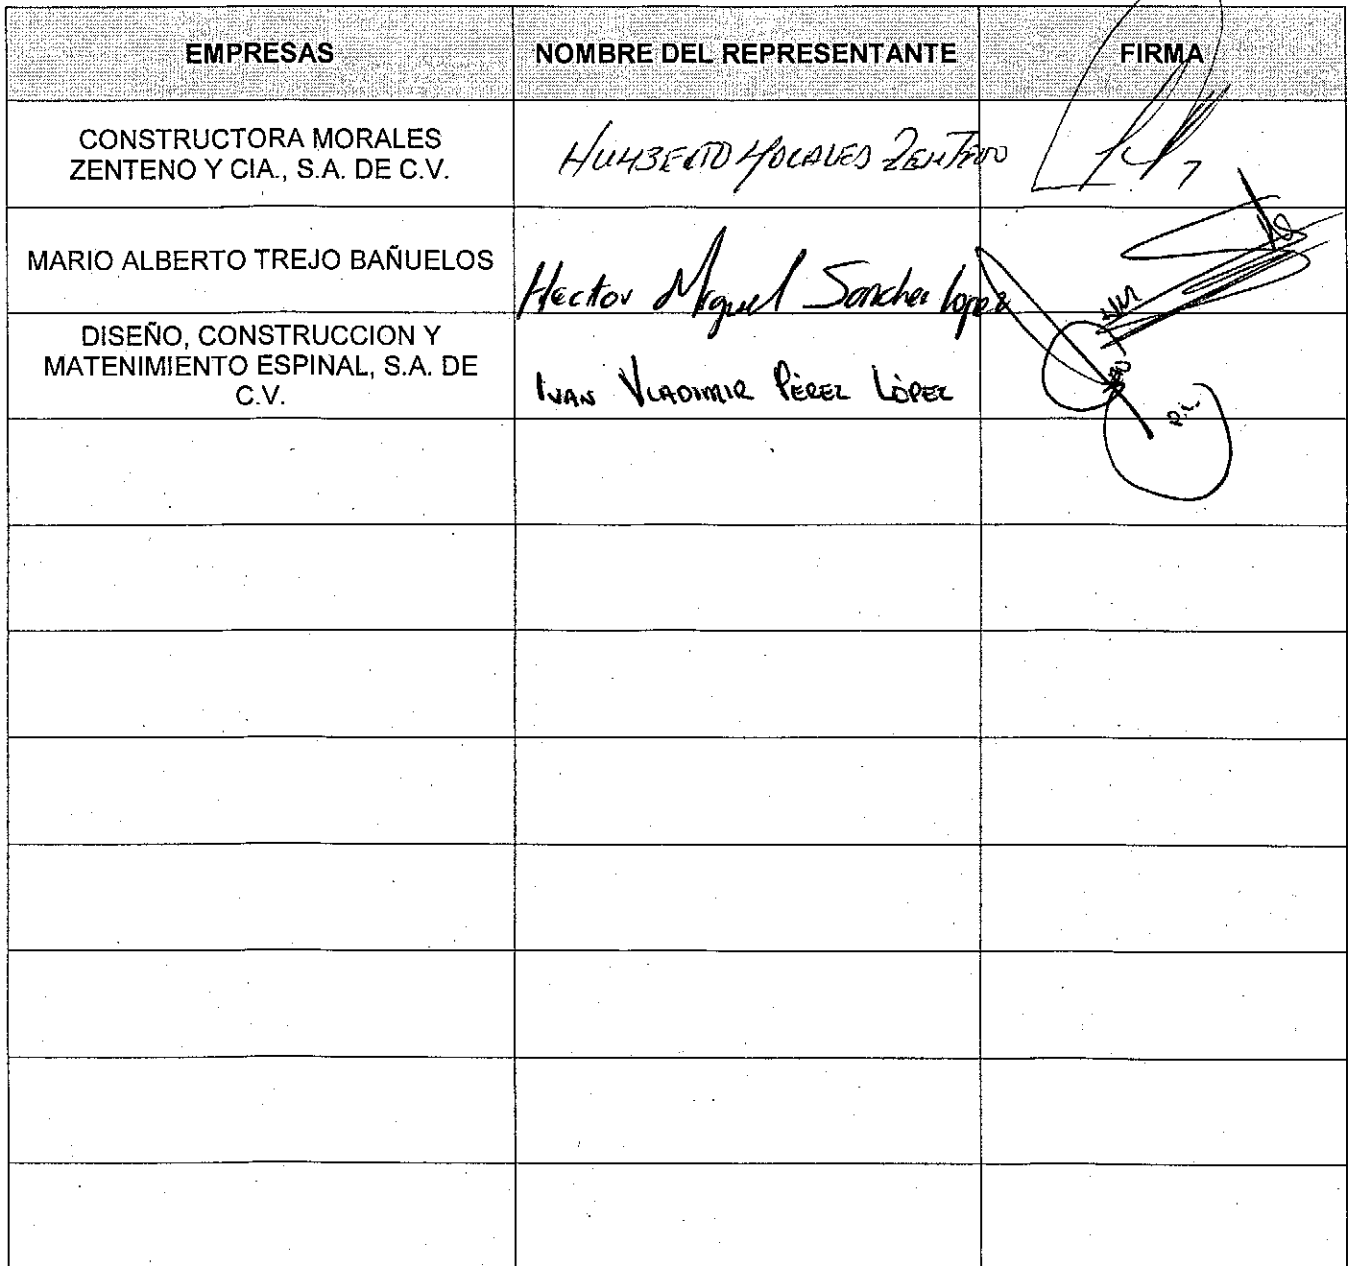 EMPRESAS NOMBRE DEL REPRESENTANTE FIRMA
CONSTRUCTORA MORALES
ZENTENO Y CIA., S.A. DE C.V.
HUMBERTO MORALES ZENTENO
MARIO ALBERTO TREJO BAÑUELOS
Hector Miguel Sanchez Lopez
DISEÑO, CONSTRUCCION Y
MATENIMIENTO ESPINAL, S.A. DE
C.V.
IVAN VLADIMIR PÈREZ LÒPEZ